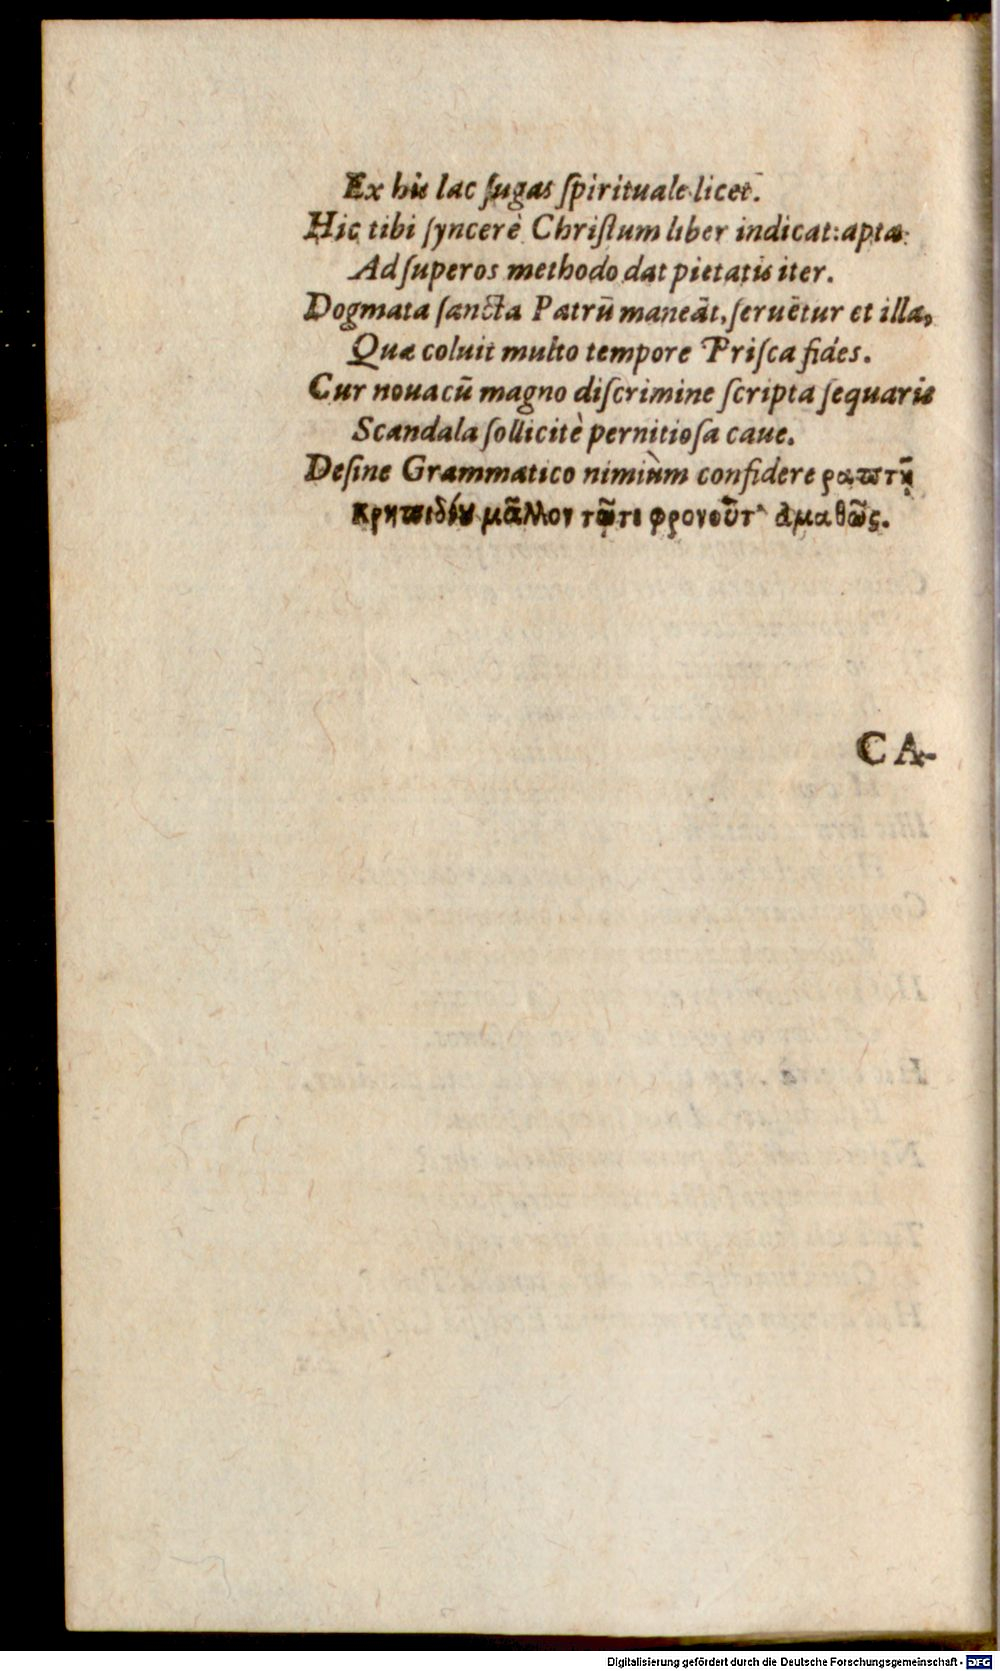 Ex his lac ſugas ſpirituale licet.
Hic tibi ſyncerè Chriſtum liber indicat: apta
Ad ſuperos methodo dat pietatis iter.
Dogmata ſancta Patrū maneāt, ſeruētur et illa,
Quæ coluit multo tempore Priſca fides.
Cur noua cū magno diſcrimine ſcripta ſequaris
Scandala ſollicitè pernitioſa caue.
Deſine Grammatico nimiùm confidere
μᾶλλον φρονοῦτ' ἀμαθῶς.
CA-
Digitalisierung gefördert durch die Deutsche Forschungsgemeinschaft - DFG